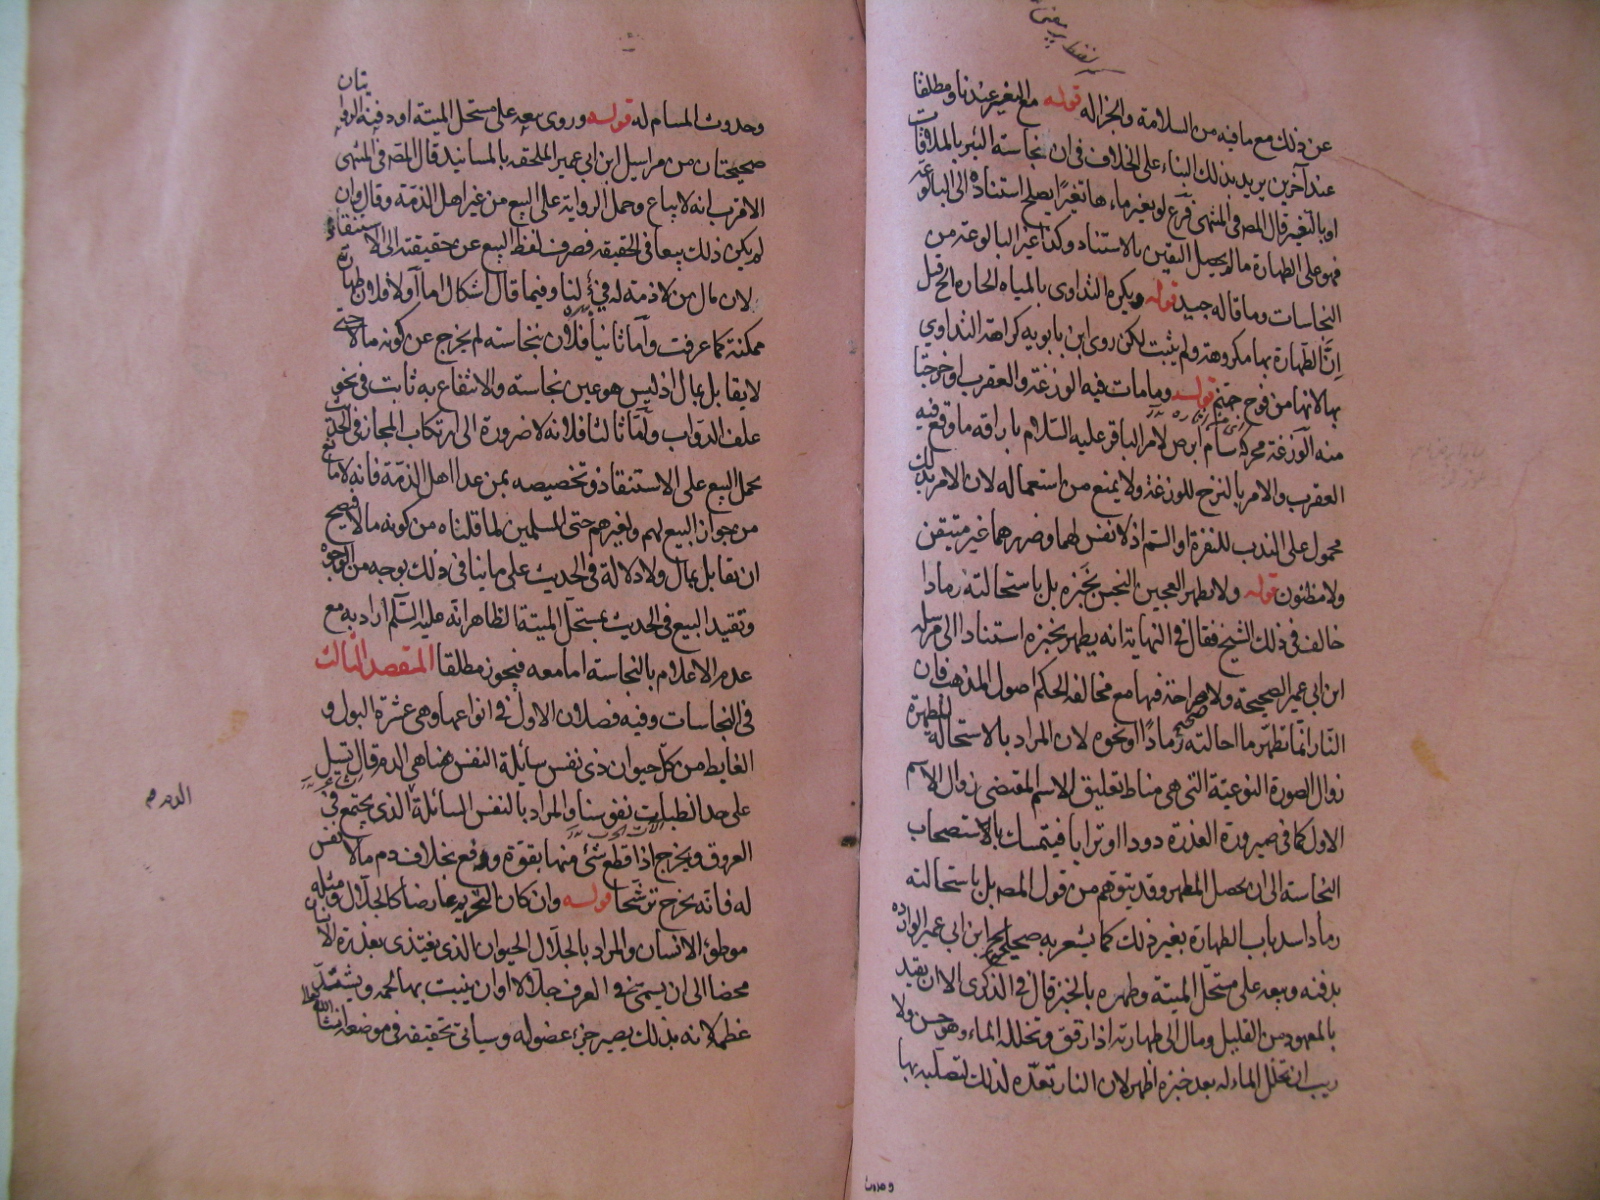 عن ذلك مع ما فيه من السلامة والجزالة قوله مع التغير عندنا ومطلقا
عند آخرين يريد بذلك البناء على الخلاف في ان نجاسة البئر بالملاقات
او بالتغير قال المص في المنتهى فرع لو تغير ماءها تغيرًا يصلح استناده الى البالوعة
فهو على الطهارة ما لم يحصل اليقين بالاستناد وكذا غير البالوعة من
النجاسات وما قاله جيد قوله ويكره التداوى بالمياه الحارة الخ قيل
انّ الطهارة بها مكروهة ولم يثبت لكن روى ابن بابويه كراهة التداوي
بها لانها من فوح جهنم قوله وما مات فيه الوزغة والعقرب او خرجتا
منه الوزغة محركة سام ابرص لامر الباقر عليه السلام باراقه ما وقع فيه
العقرب والامر بالنزح للوزغة ولا يمنع من استعماله لان الامر بذلك
محمول على الندب للنفرة او السم اذ لا نفس لهما وضررهما غير متيقن
ولا مظنون قوله ولا يطهر العجين النجس بخبزه بل باستحالته رمادا
خالف في ذلك الشيخ فقال في النهاية انه يطهر بخبزه استنادا الى مرسله
ابن ابي عمير الصحيحة ولا صراحة فيها مع مخالفة الحكم اصول المذهب فان
النار انما تطهر ما احالته رمادًا او نحوه لان المراد بالاستحالة المطهرة
زوال الصورة النوعية التى هي مناط تعليق الاسم المقتضى زوال الاسم
الاول كما في صيرورة العذرة دودا او ترابا فيتمسك بالاستصحاب
النجاسة الى ان يحصل المطهر وقد يتوهم من قول المص بل باستحالته
رمادا سد باب الطهارة بغير ذلك كما يشعر به صحيح ابن ابي عمير الواردة
بدفنه وبيعه على مستحل الميتة وطهره بالخبز قال في الذكرى الا ان يقيد
بالمعهود من القليل ومال الى طهارته اذا رقق وتخلله الماء وهو حسن ولا
ريب ان تخلل الماء له بعد خبزه اظهر لان النار تعده لذلك لتصلبه بها
وحدوث
وحدوث المسام له قوله وروى بيعه على مستحل الميتة او دفنه الروايتان
صحيحتان من مراسيل ابن ابي عمير الملحقه بالمسانيد قال المص في المنتهى
الاقرب انه لا يباع وحمل الرواية على البيع من غير اهل الذمة وقال وان
لم يكن ذلك بيعا في الحقيقه فصرف لفظ البيع عن حقيقته الى الاستنقاذ
لان مال من لا ذمة له فيء لنا وفيما قال اشكال اما اولا فلان طهارته
ممكنة كما عرفت وامّا ثانيا فلان نجاسته لم يخرج عن كونه مالا حتى
لا يقابل بمال اذ ليس هو عين نجاسة والانتفاع به ثابت في نحو
علف الدواب وامّا ثالثا فلانه لا ضرورة الى ارتكاب المجاز في الحديث
بحمل البيع على الاستنقاذ وتخصيصه بمن عدا اهل الذمّة فانه لا مانع
من جواز البيع لهم ولغيرهم حتى المسلمين لما قلناه من كونه مالا فيصح
ان يقابل بمال ولا دلالة في الحديث على ما ينافى ذلك بوجه من الوجوه
وتقييد البيع في الحديث بمستحل الميتة الظاهر انه عليه السلم اراد به مع
عدم الاعلام بالنجاسة اما معه فيجوز مطلقا المقصد الثالث
في النجاسات وفيه فصلان الاول في انواعها وهي عشرة البول و
الغايط من كل حيوان ذى نفس سائلة النفس هنا هي الدم قال تسيل
على حد الظبات نفوسنا والمراد بالنفس السائلة الذى يجتمع في
الدم م
العروق ويخرج اذا قطع شئ منها بقوة ودفع بخلاف دم ما لا نفس
له فانه يخرج ترشحا قوله وان كان التحريم عارضا كالجلال ومثله
موطوء الانسان والمراد بالجلال الحيوان الذى يغتذى بعذرة الانسان
محضا الى ان يسمى في العرف جلالا او ان ينبت بها لحمه ويشتد
عظمه لانه بذلك يصير جزء عضو له وسيأتى تحقيقه في موضعه انشاء الله تعالى